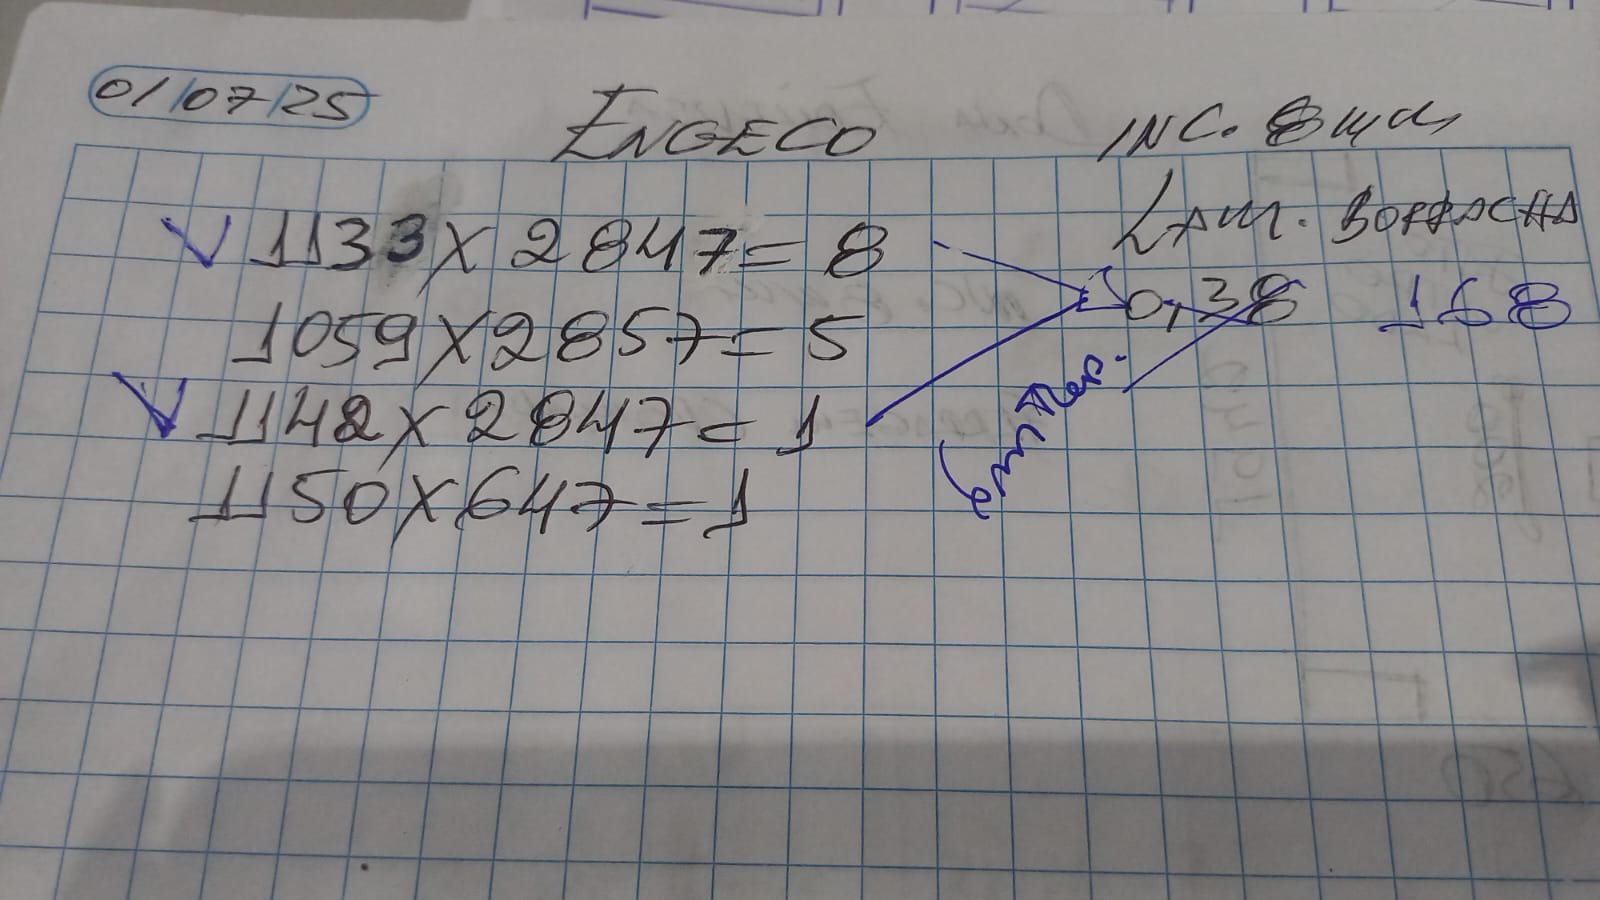 01/07/25 ENGECO INC. 8mm
LAM. BORRACHA
V 1133 X 2847 = 8
0,38 168
1059 X 2857 = 5
V 1142 X 2847 = 1
1150 X 647 = 1